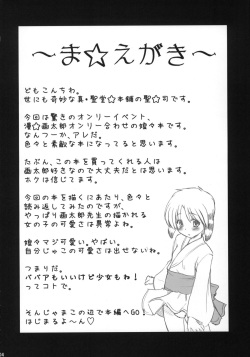 ～ま☆えがき～
どもこんちわ。
世にも奇妙な真・聖堂☆本舗の聖☆司です。
今回は驚きのオンリーイベント、
漫☆画太郎オンリー合わせの姫々本です。
なんつーか、アレだ。
色々と素敵な本になってると思います。
たぶん、この本を買ってくれる人は
画太郎好きなので大丈夫だとは思います。
ボクは信じてます。
今回の本を描くにあたり、色々と
読み返してみたのだけど、
やっぱり画太郎先生の描かれる
女の子の可愛さは異常よね。
姫々マジ可愛い。やばい。
自分じゃこの可愛さは出せないね。
つまりだ。
ババアもいいけど少女もね！
ってコトで。
そんじゃまこの辺で本編へGO！
はじまるよ～ん♡